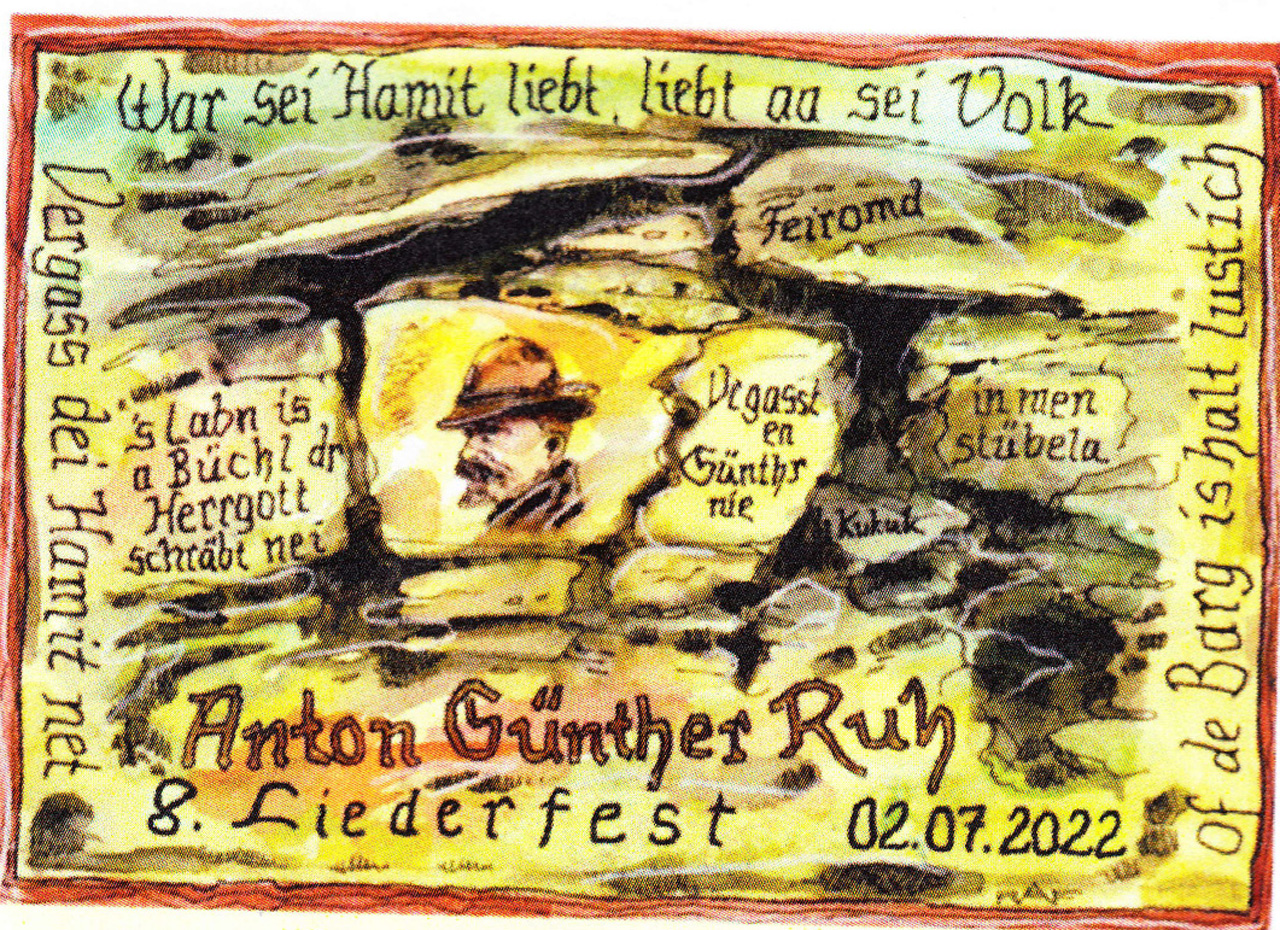 War sei Hamit liebt, liebt aa sei Volk
Vergass dei Hamit net
Of de Barg is halt lustich
Feiromd
's Labn is
a Büchl dr
Herrgott
schräbt nei
Vegasst
en
Günthr
nie
in men
stübela
Kukuk
Anton Günther Ruh
8. Liederfest 02.07.2022